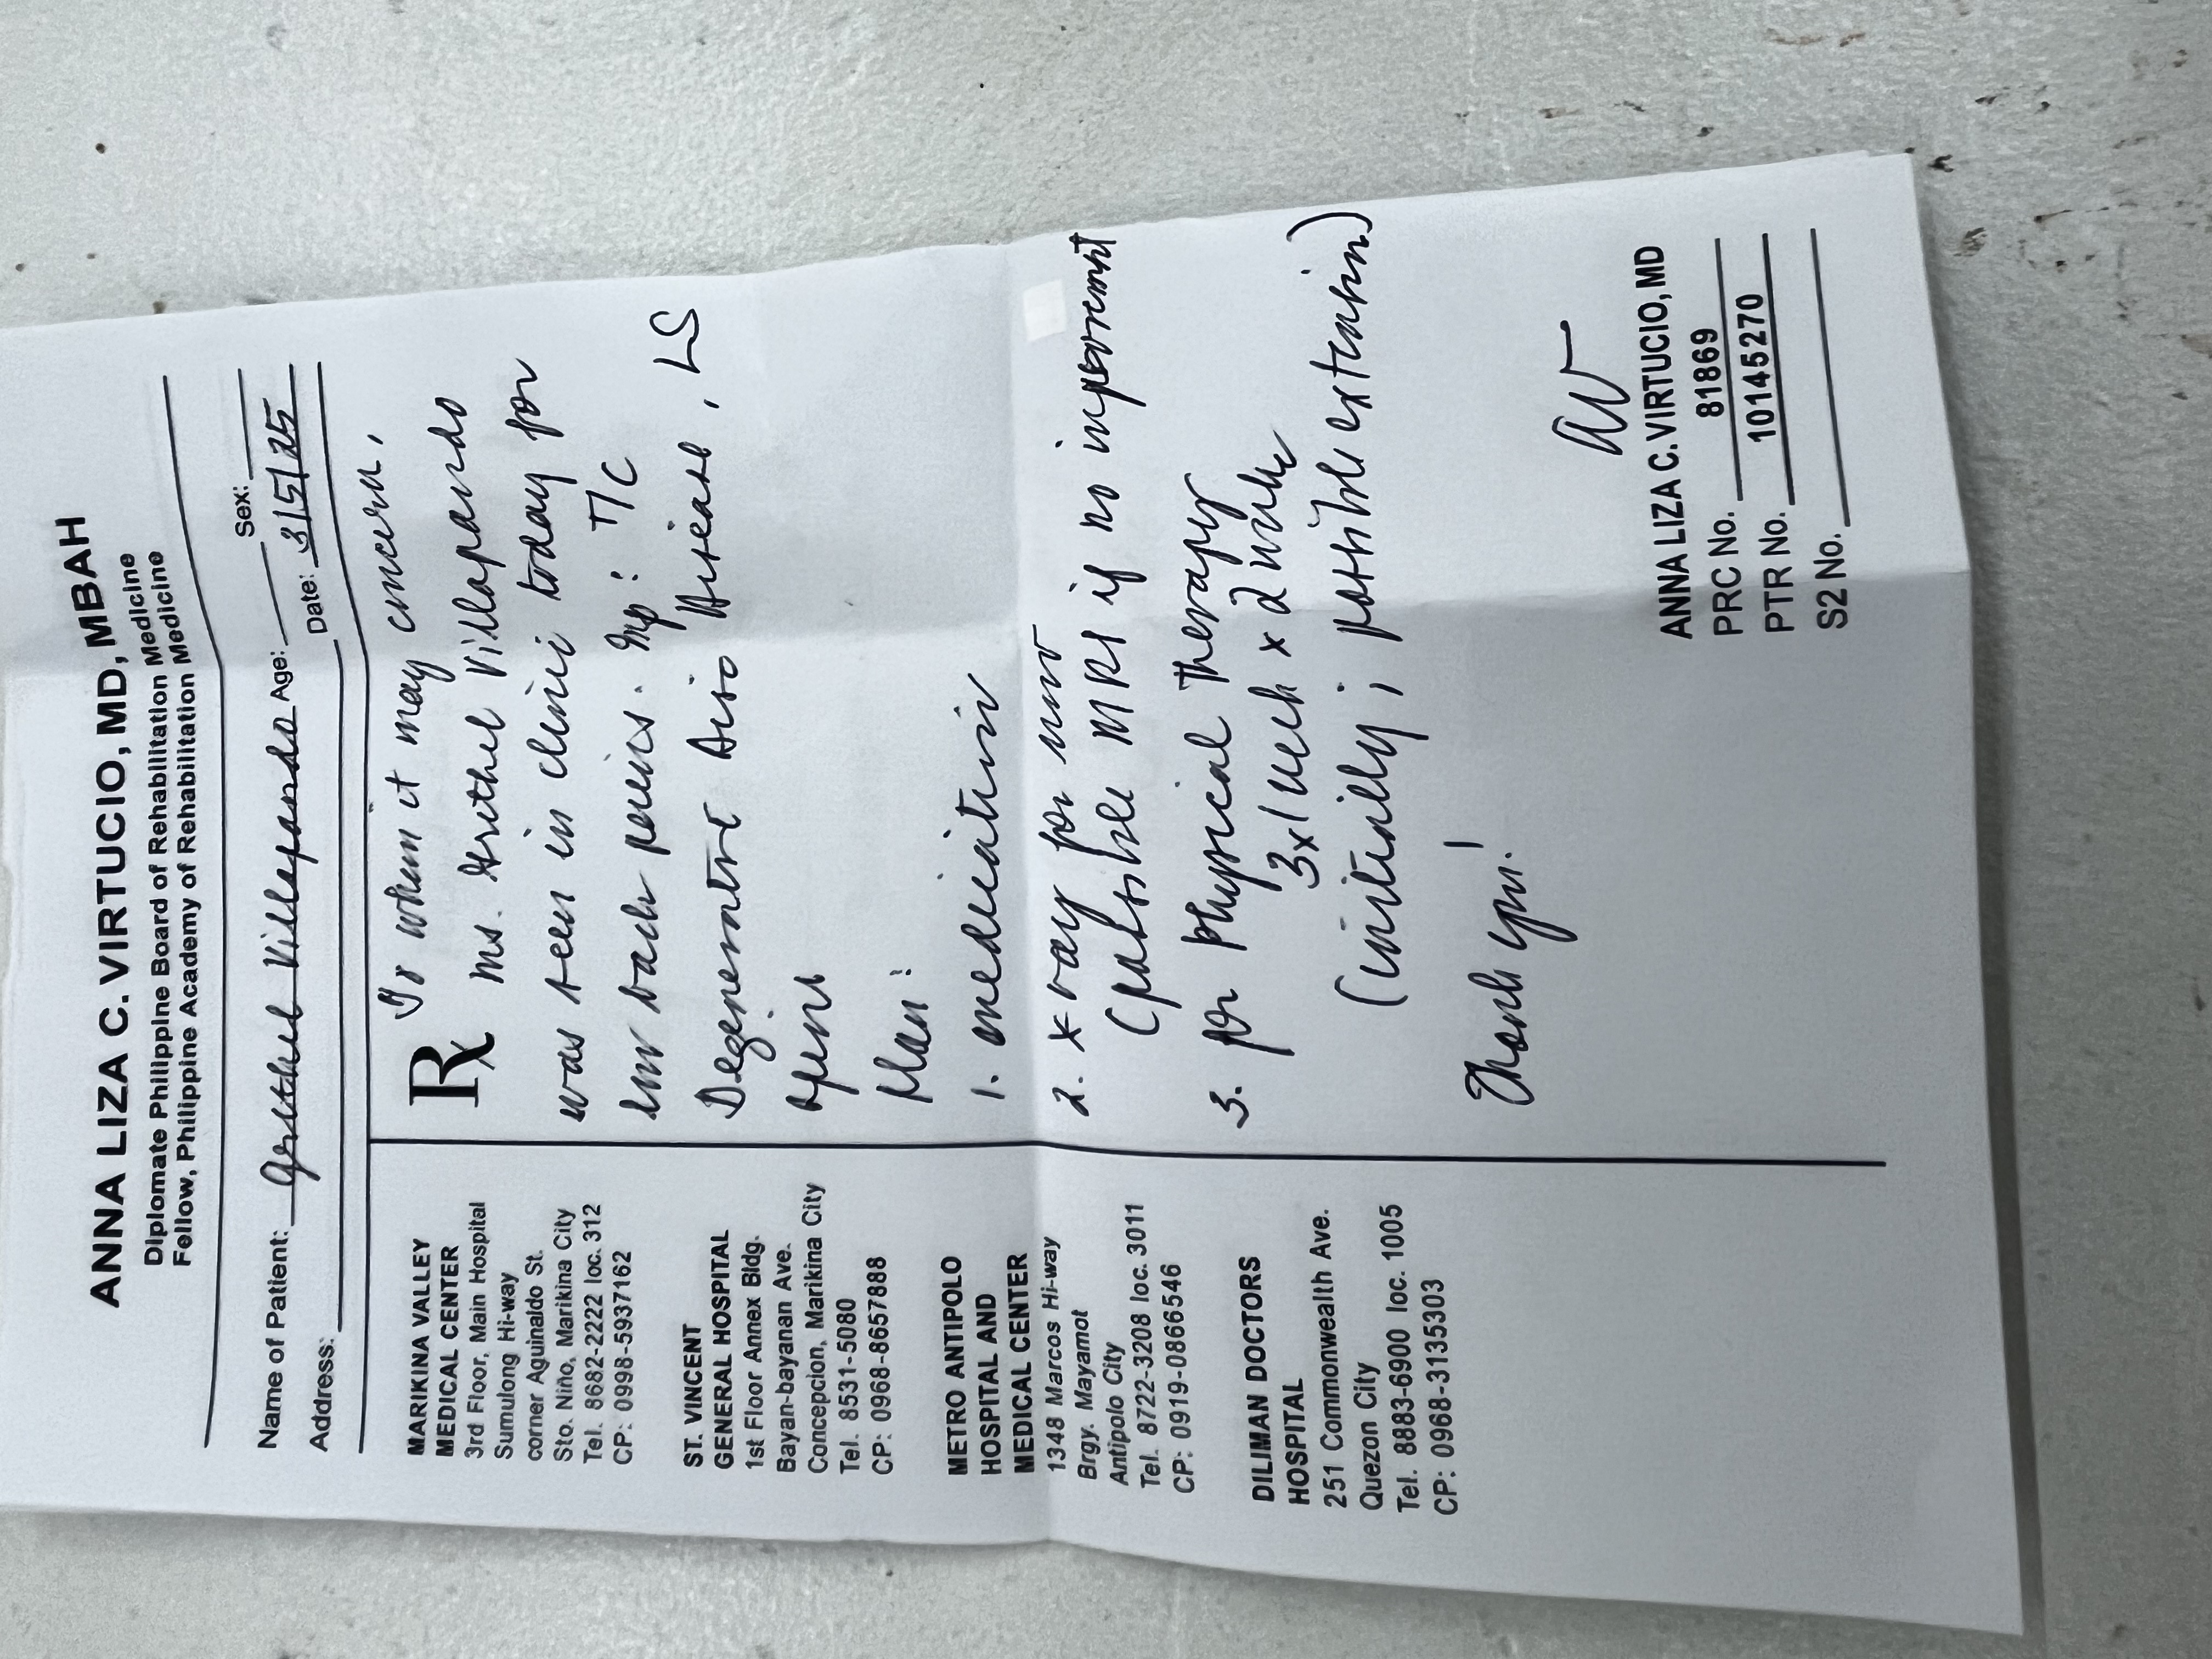 ANNA LIZA C. VIRTUCIO, MD, MBAH
Diplomate Philippine Board of Rehabilitation Medicine
Fellow, Philippine Academy of Rehabilitation Medicine
Name of Patient: Grethel Villapando Age: Sex:
Address: Date: 3/5/25
MARIKINA VALLEY
MEDICAL CENTER
3rd Floor, Main Hospital
Sumulong Hi-way
corner Aguinaldo St.
Sto. Niño, Marikina City
Tel. 8682-2222 loc. 312
CP: 0998-5937162
ST. VINCENT
GENERAL HOSPITAL
1st Floor Annex Bldg.
Bayan-bayanan Ave.
Concepcion, Marikina City
Tel. 8531-5080
CP: 0968-8657888
METRO ANTIPOLO
HOSPITAL AND
MEDICAL CENTER
1348 Marcos Hi-way
Brgy. Mayamot
Antipolo City
Tel. 8722-3208 loc. 3011
CP: 0919-0866546
DILIMAN DOCTORS
HOSPITAL
251 Commonwealth Ave.
Quezon City
Tel. 8883-6900 loc. 1005
CP: 0968-3135303
Rx To whom it may concern,
Ms. Grethel Villapando
was seen in clinic today for
low back pains. Imp: T/C
Degenerative Disc Disease, LS
spine
Plan:
1. medication
2. xray for now
(possible MRI if no improvement
3. for Physical Therapy
3x/week x 2 weeks
(initially; possible extension)
Thank you!
ANNA LIZA C. VIRTUCIO, MD
PRC No. 81869
PTR No. 10145270
S2 No.